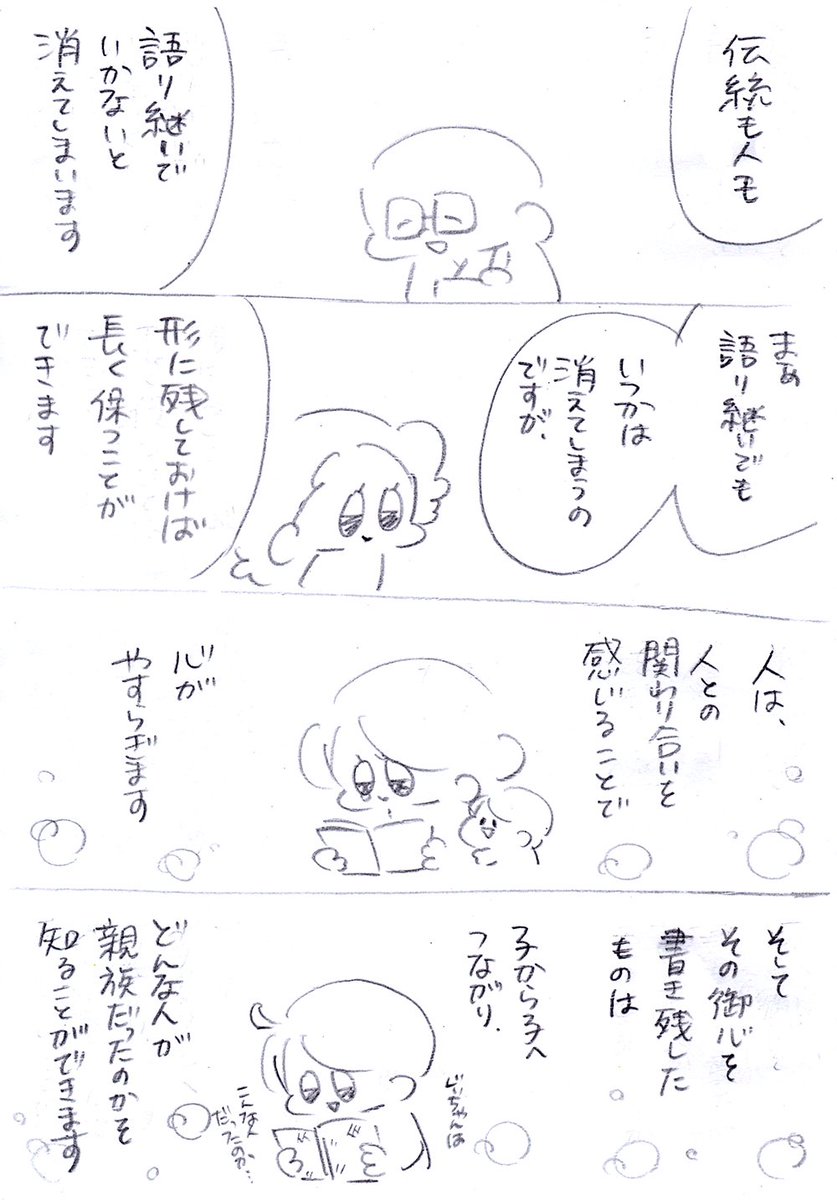 伝統も人も
語り継いで
いかないと
消えてしまいます
まぁ
語り継いでも
いつかは
消えてしまうの
ですが、
形に残しておけば
長く保つことが
できます
人は、
人との
関わり合いを
感じることで
心が
やすらぎます
そして
その御心を
書き残した
ものは
子から子へ
つながり、
じいちゃんは
こんな人
だったのか…
どんな人が
親族だったのかを
知ることができます